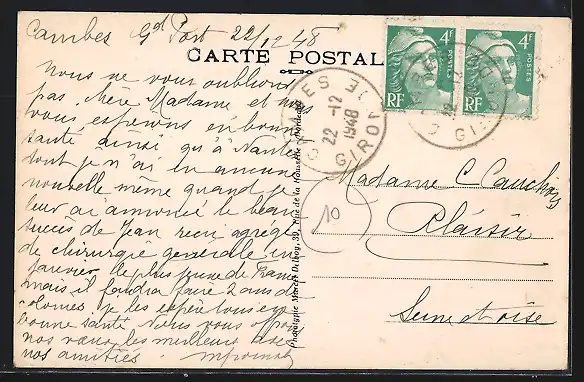 Cambes Gd Port 22/12 48
CARTE POSTALE
Nous ne vous oublions
pas chère Madame et nous
vous espérons en bonne
santé ainsi qu'à Nantes
dont je n'ai eu aucune
nouvelle même quand je
leur ai annoncé le beau
succès de Jean reçu agrégé
de chirurgie générale en
janvier le plus jeune de France
mais il faudra faire 2 ans de
je les espère tous en
bonne santé Nous vous
nos vœux les meilleurs avec
nos amitiés.
4F
POSTES
RF
4F
POSTES
RF
CAMBES
22 -12
1948
GIRONDE
22
GIRONDE
Madame C
Plaisir
Seine et oise
10
Phototypie Marcel Delboy, 39, Rue de la